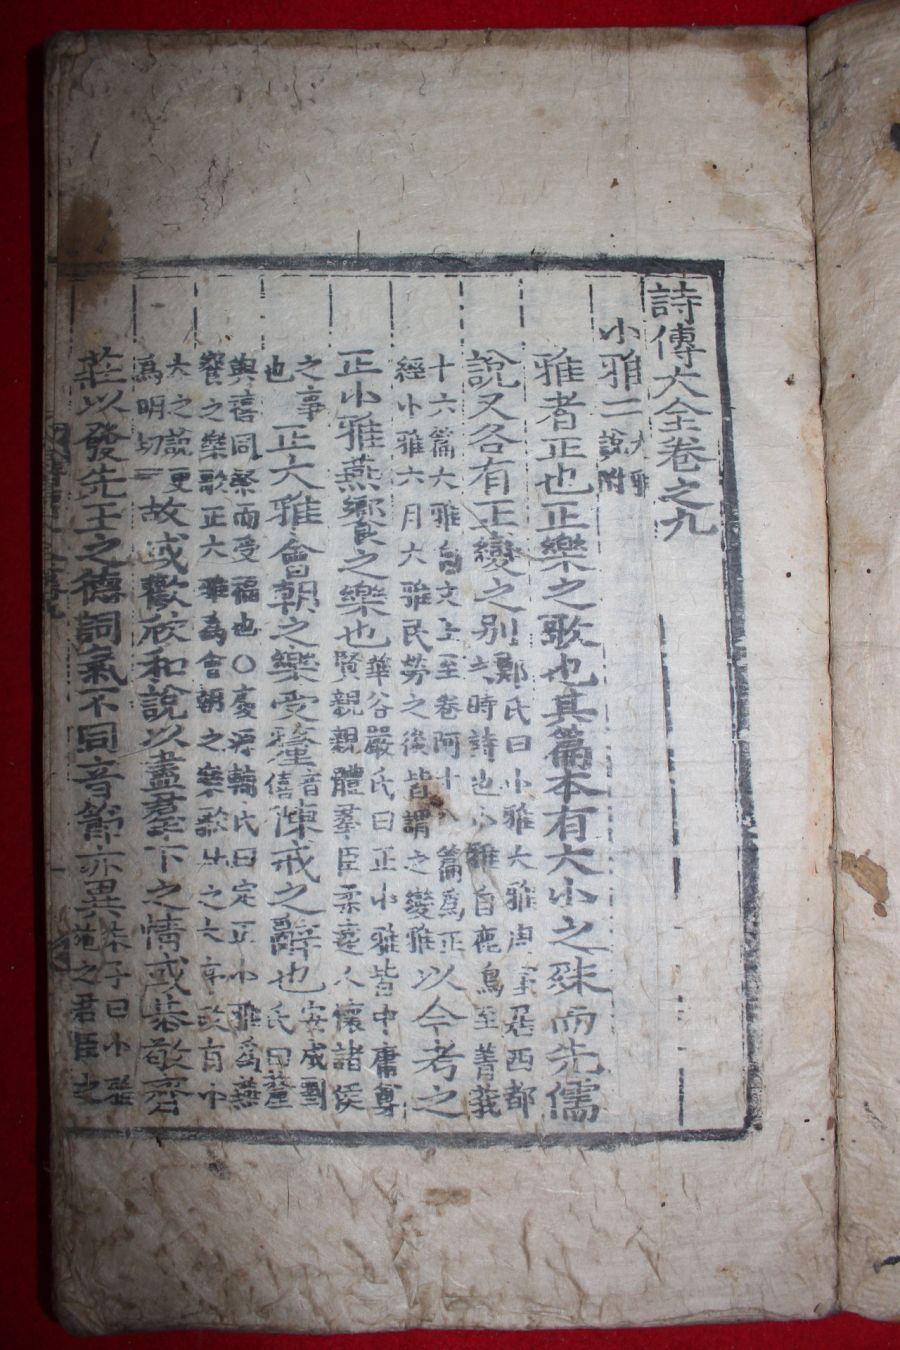 詩傳大全卷之九
小雅二 大雅說附
雅者正也正樂之歌也其篇本有大小之殊而先儒
說又各有正變之別 鄭氏曰小雅大雅周室居西都
時詩也小雅自鹿鳴至菁莪
十六篇大雅自文王至卷阿十八篇爲正
經小雅六月大雅民勞之後皆謂之變雅 以今考之
正小雅燕饗之樂也 華谷嚴氏曰正小雅皆中庸尊
賢親親體羣臣柔遠人懷諸侯
之事
也 正大雅會朝之樂受釐 音
僖 陳戒之辭也 安成劉
氏曰釐
與禧同祭而受福也○慶源輔氏曰定正小雅爲燕
饗之樂歌正大雅爲會朝之樂歌此之大序政有小
大之說更
爲明切 故或歡欣和說以盡羣下之情或恭敬齊
莊以發先王之德詞氣不同音節亦異 朱子曰小雅
之君臣之